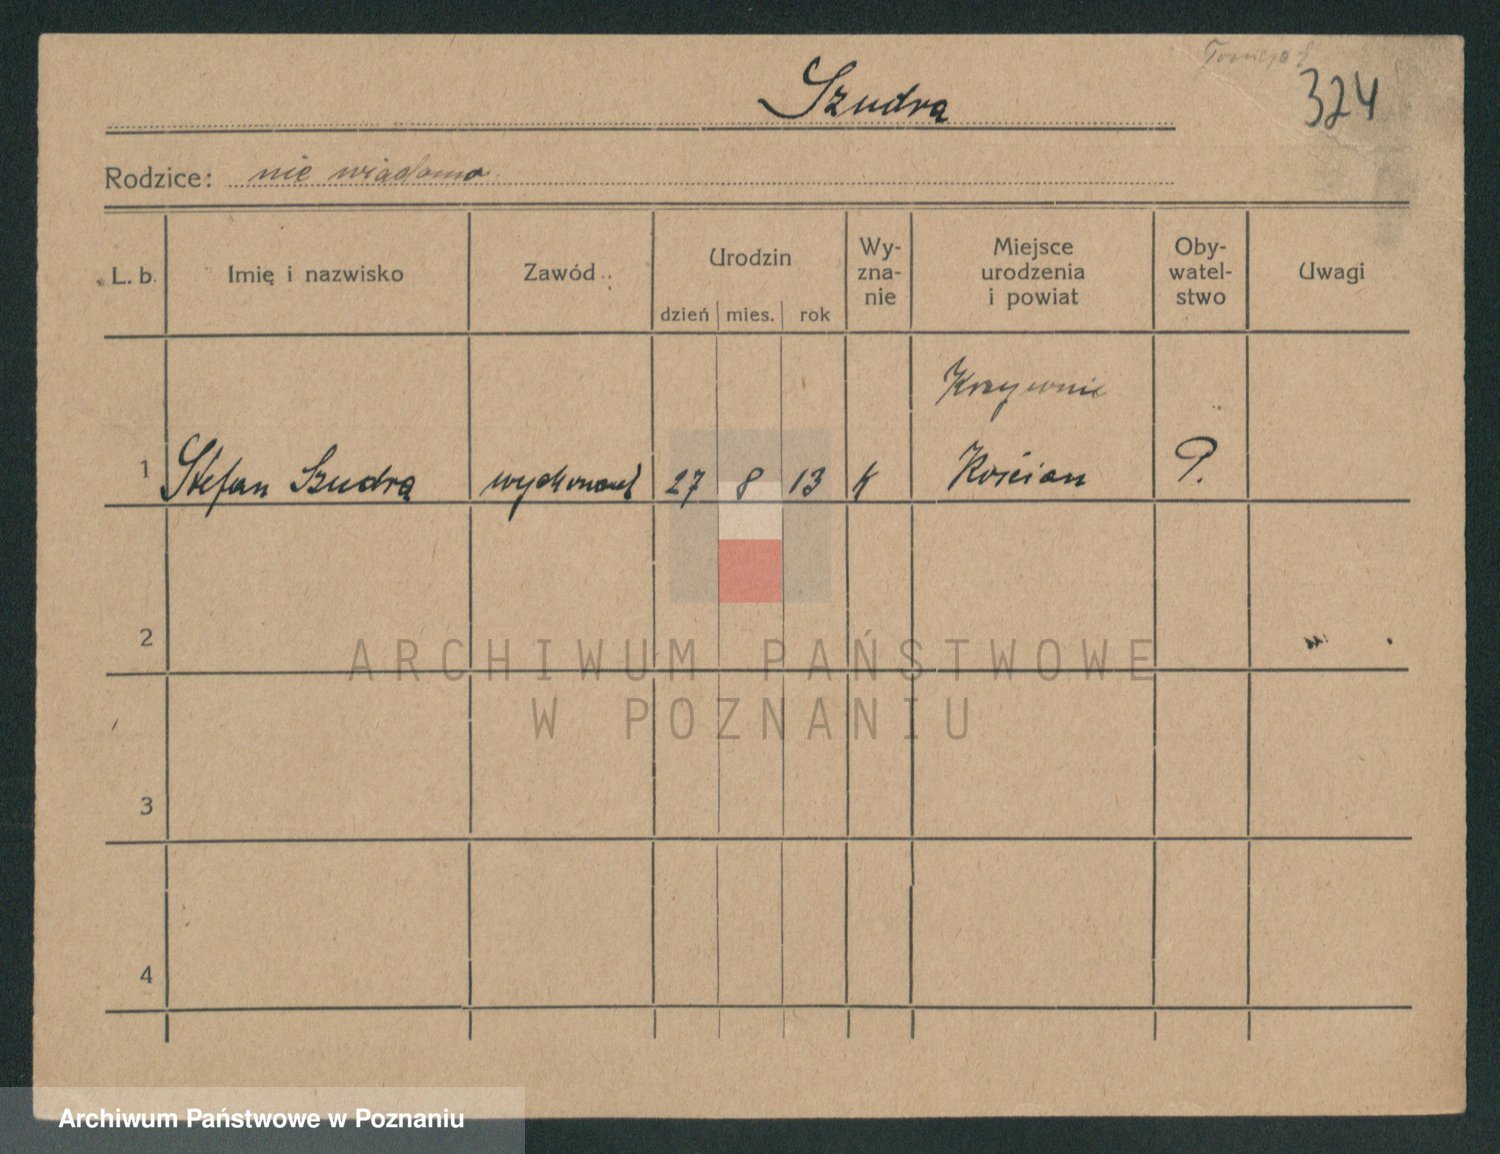 324
Szudra
Rodzice: nie wiadomo
L. b. Imię i nazwisko Zawód Urodzin dzień mies. rok Wy-zna-nie Miejsce urodzenia i powiat Oby-watel-stwo Uwagi
Krzywnie
1 Stefan Szudra 27 8 13 k Kościan ?
2
3
4
ARCHIWUM PAŃSTWOWE
W POZNANIU
Archiwum Państwowe w Poznaniu